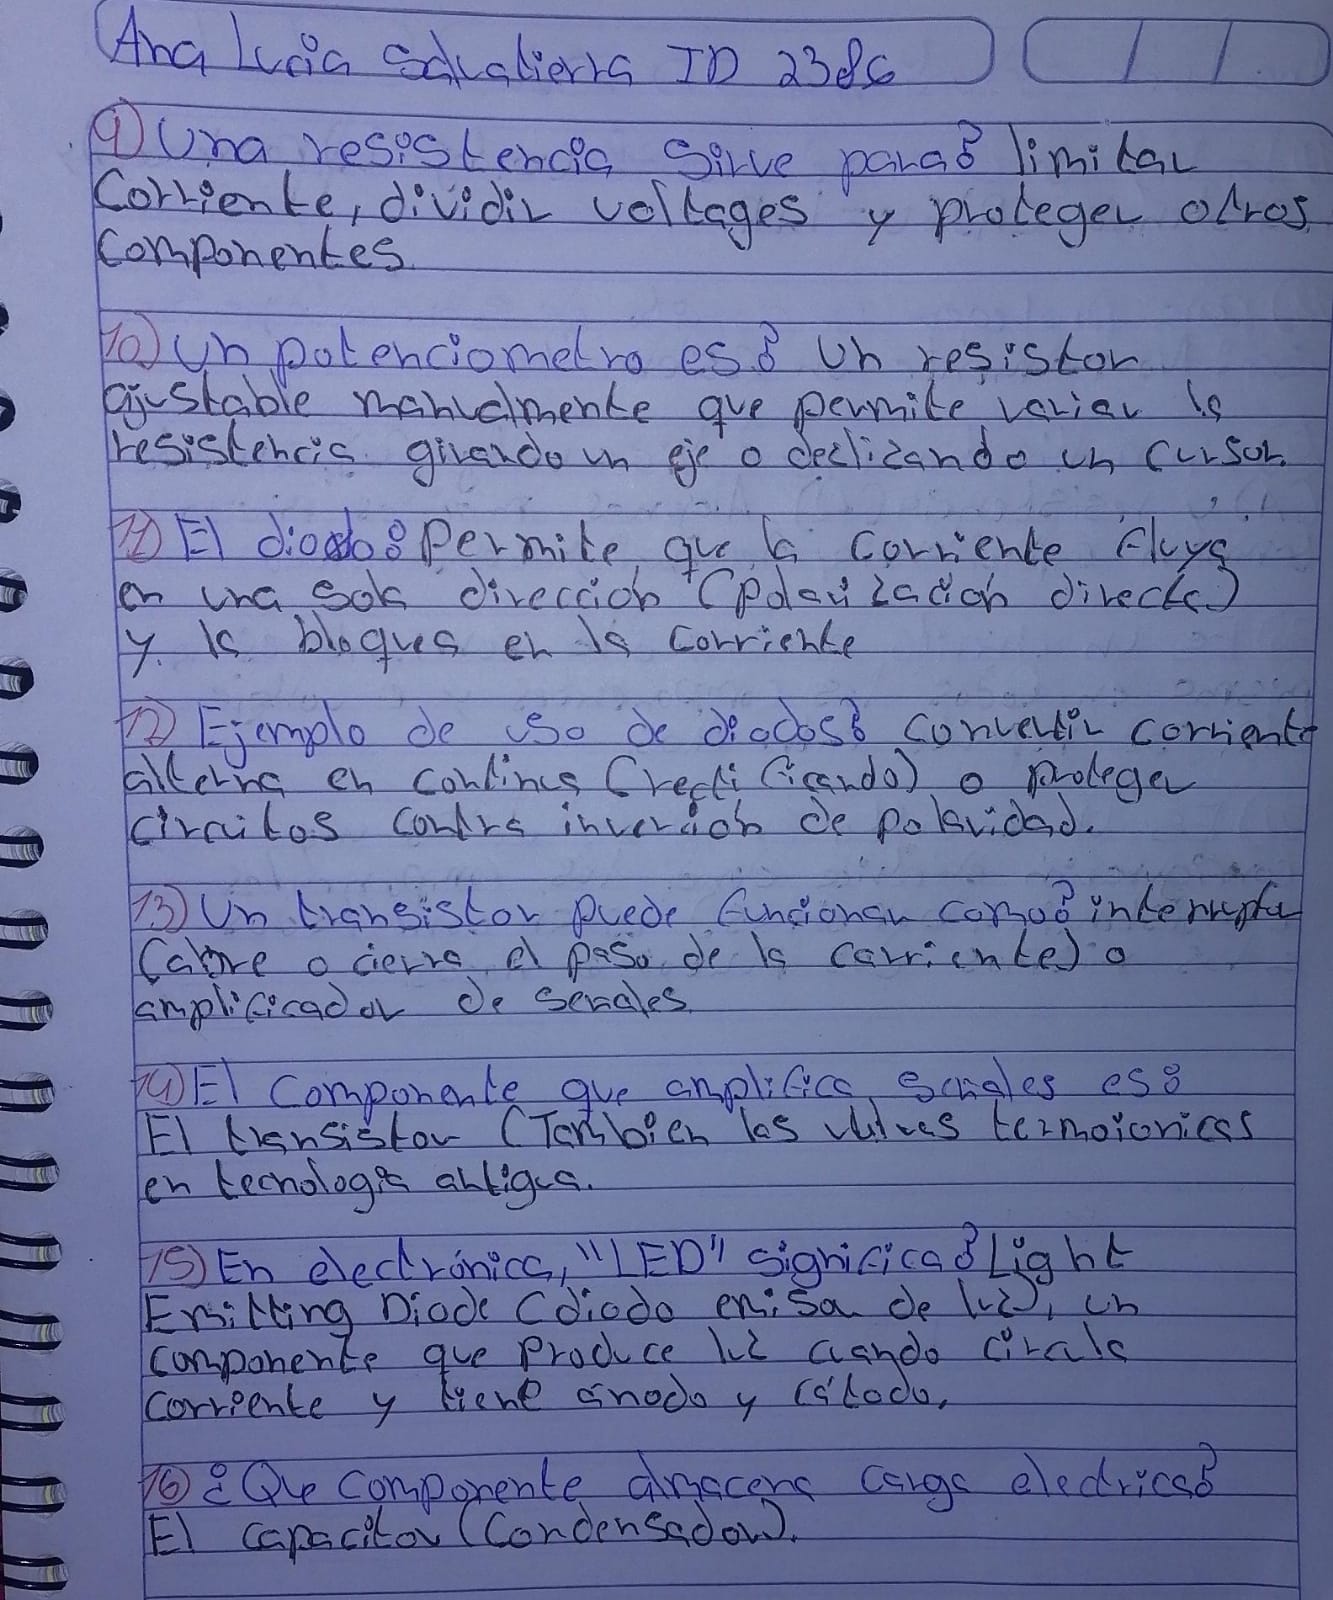 Ana Lucia Salvatierra ID 2386
9) Una resistencia sirve para: limitar
Corriente, dividir voltages y proteger otros
componentes.
10) Un potenciometro es: Un resistor
ajustable manualmente que permite variar la
resistencia girando un eje o declizando un cursor.
11) El diodo: Permite que la corriente fluya
en una sola dirección (polarización directa)
y la bloquea en la corriente
12) Ejemplo de uso de diodos: convertir corriente
alterna en continua (rectificando) o proteger
circuitos contra inversión de polaridad.
13) Un transistor puede funcionar como: interruptor
(abre o cierra el paso de la corriente) o
amplificador de señales
14) El componente que amplifica señales es:
El transistor (También las termoionicas
en tecnologia antigua.
15) En electrónica, "LED" significa: Light
Emitting Diode (diodo emisor de luz), un
componente que produce luz cuando circula
corriente y tiene ánodo y cátodo.
16) ¿Que componente almacena carga electrica?
El capacitor (Condensador).